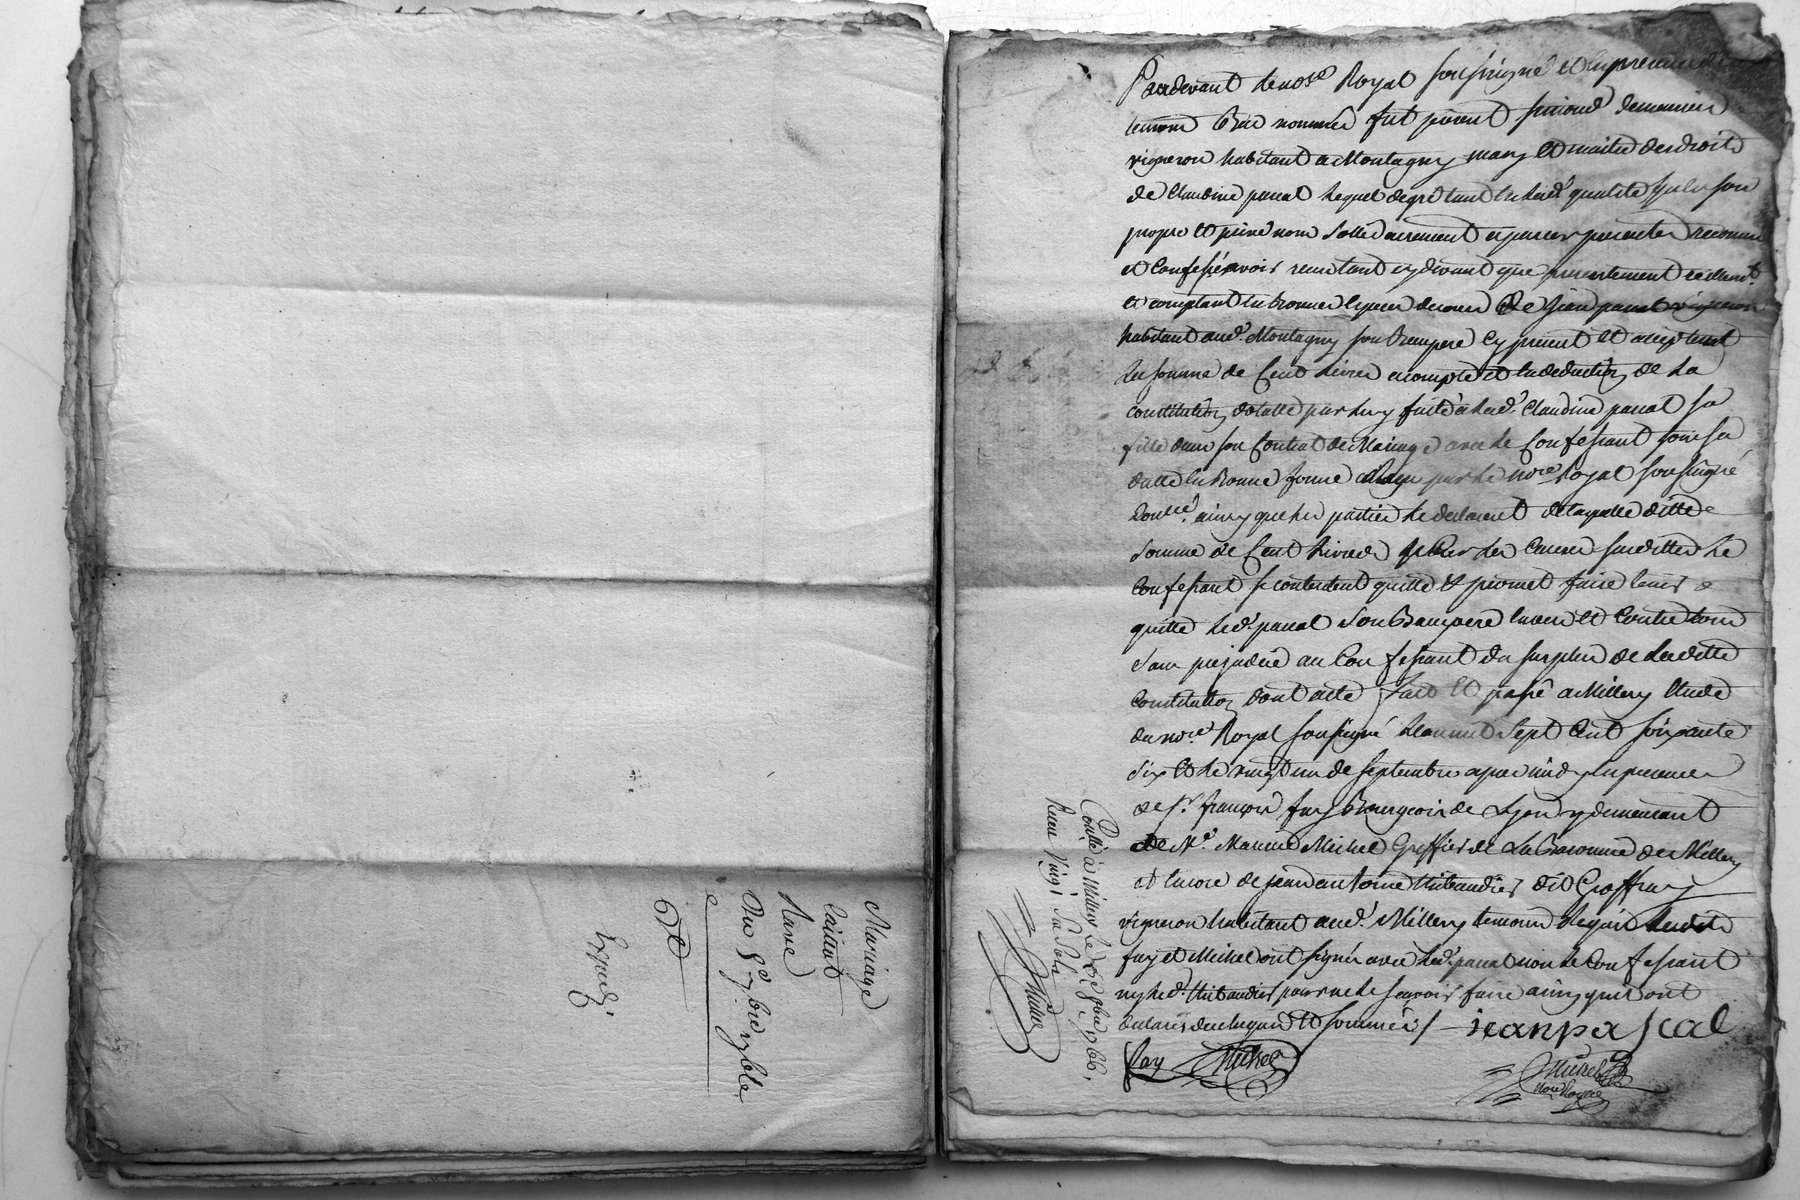 Mariage
Caillat
Pardevant le no.re Royal soussigné et en presence des
temoins bas nommés fut present simond
vigneron habitant a Montagny mary et maitre des droits
de Claudine pascal lequel de gré tant en lad.e qualité qu'en son
propre et privé nom solidairement a par ces presentes reconnu
et confessé avoir reçu tant cy devant que presentement reellem.t
et comptant en bonnes especes de cours de Jean pascal vigneron
habitant aud.t Montagny son beaupere cy present et acceptant
la somme de Cent livres acompte et en deduction de la
constitution dotalle par luy faite à lad.e Claudine pascal sa
fille dans son Contrat de Mariage avec le Confessant sous sa
datte en bonne forme reçu par le no.re Royal soussigné
Controllé ainsy que les parties le declarent de laquelle ditte
somme de Cent livres pour les causes susdittes le
Confessant se contentent quitte et promet faire tenir
quitte led.t pascal son Beaupere envers et contre tous
sans prejudice au Confessant du surplus de laditte
Constitution dont acte fait et passé a Millery Etude
du no.re Royal soussigné l'an mil sept cent soixante
six et le vingt un de septembre apres midy en presence
de s.r françois fay Bourgeois de Lyon y demeurant
de M.e Michel Greffier de La Baronnie de Millery
et encore de jean antoine thibaudier dit Geoffray
vigneron habitant aud.t Millery temoins lesquels
fay et Michel ont signé avec led.t pascal non le Confessant
ny led.t thibaudier pour ne le sçavoir faire ainsy qu'ils ont
declaré de ce enquis et sommés /. jean pascal
fay Michel
Michel
no.re Royal
Conllé à Millery le 1766.
Reçu
Michel